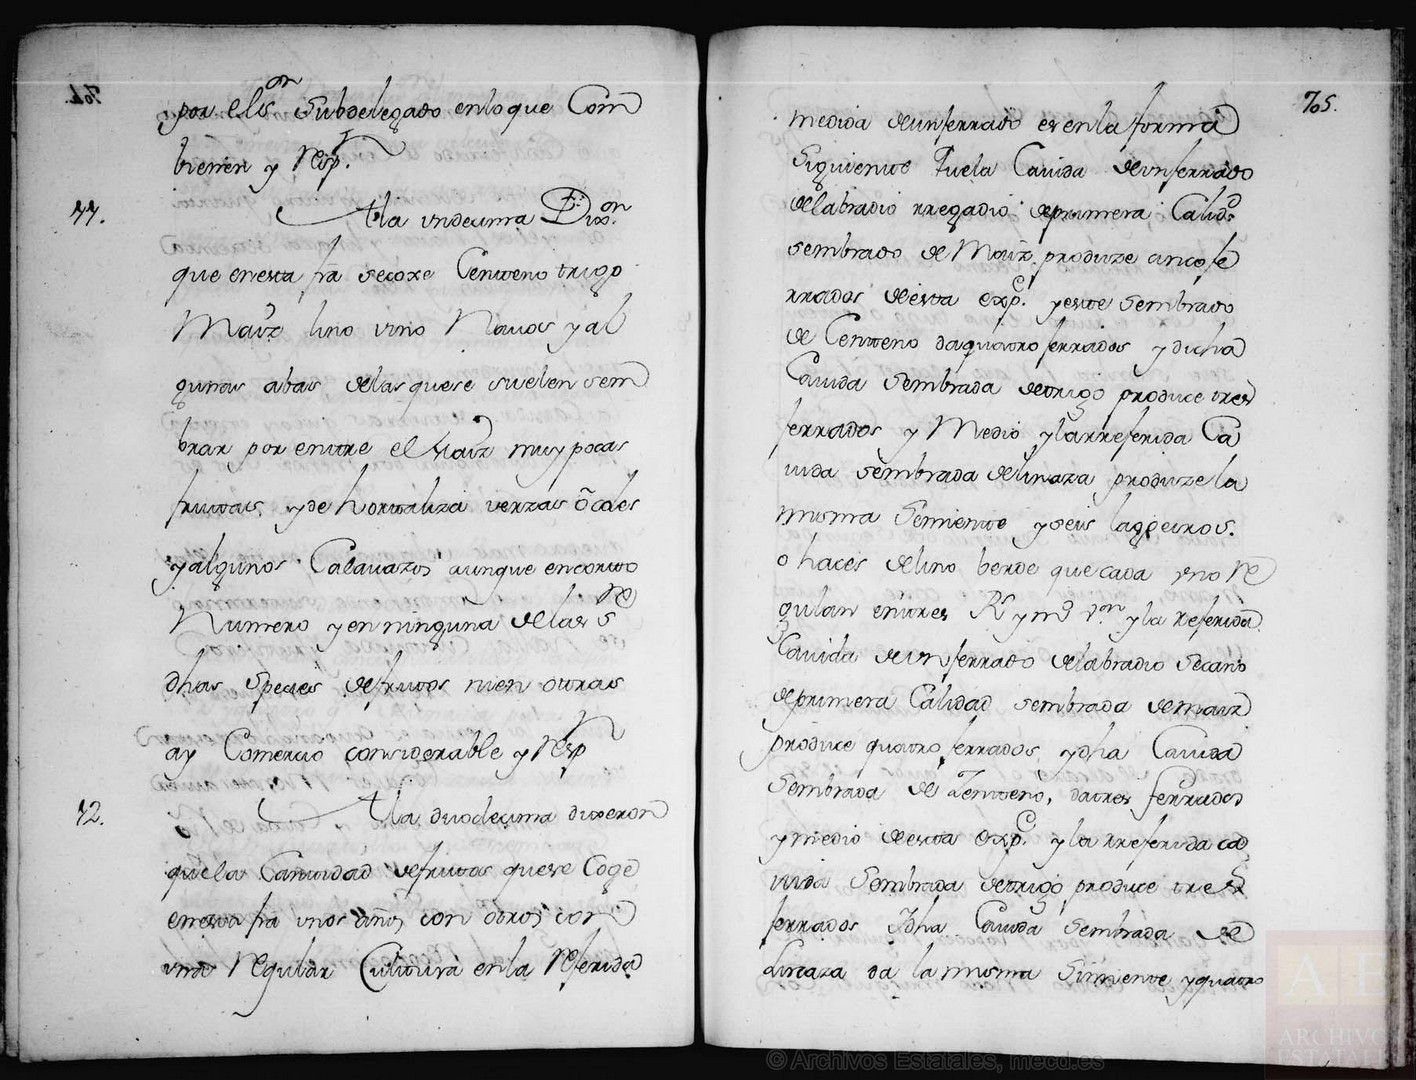 por el Sr. Subdelegado en lo que Com
bienen y Resp.
11. A la undecima Dixon.
que en esta fra se coxe Centeno trigo
Maiz lino vino Navos y al
gunas abas de las que se suelen sem
brar por entre el Maiz muy pocas
frutas, y de hortaliza verzas o coles
y algunos Calavazos aunque en corto
Numero y en ninguna de las re
dhas Species de frutos ni en otras
ay Comercio considerable y Resp
12. A la duodecima dixeron
que la Cantidad de frutos que se Coge
en esta fra unos años con otros con
una Regular Cultura en la Referida
705.
medida de un ferrado es en la forma
Siguiente Que la Cavida de un ferrado
de labradio rregadio de primera Calidd
sembrado de Maiz produze cinco fe
rrados de esta expe. y este sembrado
de Centeno da quatro ferrados y dicha
Cavida sembrada de trigo produce tres
ferrados y Medio y la rreferida Ca
vida sembrada de linaza produze la
misma Semiente y seis lageiros.
o haces de lino berde que cada uno Re
gulan en tres Rs y mo. von y la referida
Cavida de un ferrado de labradio secano
de primera Calidad sembrada de maiz
produce quatro ferrados y dha Cavida
Sembrada de Zenteno, da tres ferrados
y medio de esta expe. y la rreferida ca
vida Sembrada de trigo produce tres
ferrados Y dha Cavida Sembrada de
Linaza da la misma Simiente y quatro
© Archivos Estatales, mecd.es
AE
ARCHIVOS
ESTATALES